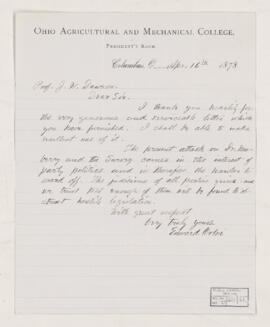 OHIO AGRICULTURAL AND MECHANICAL COLLEGE.
PRESIDENT'S ROOM
Columbus, O., Apr. 16th 1878
Prof. J. W. Dawson,
Dear Sir,
I thank you heartily for
the very generous and serviceable letter which
you have furnished. I shall be able to make
excellent use of it.
The present attack on Dr. New-
berry and the Survey comes in the interest of
party politics, and is therefore the harder to
ward off. The of all parties
we trust that enough of them will be found to de-
feat hostile legislation.
With great respect
Very truly yours
Edward Orton